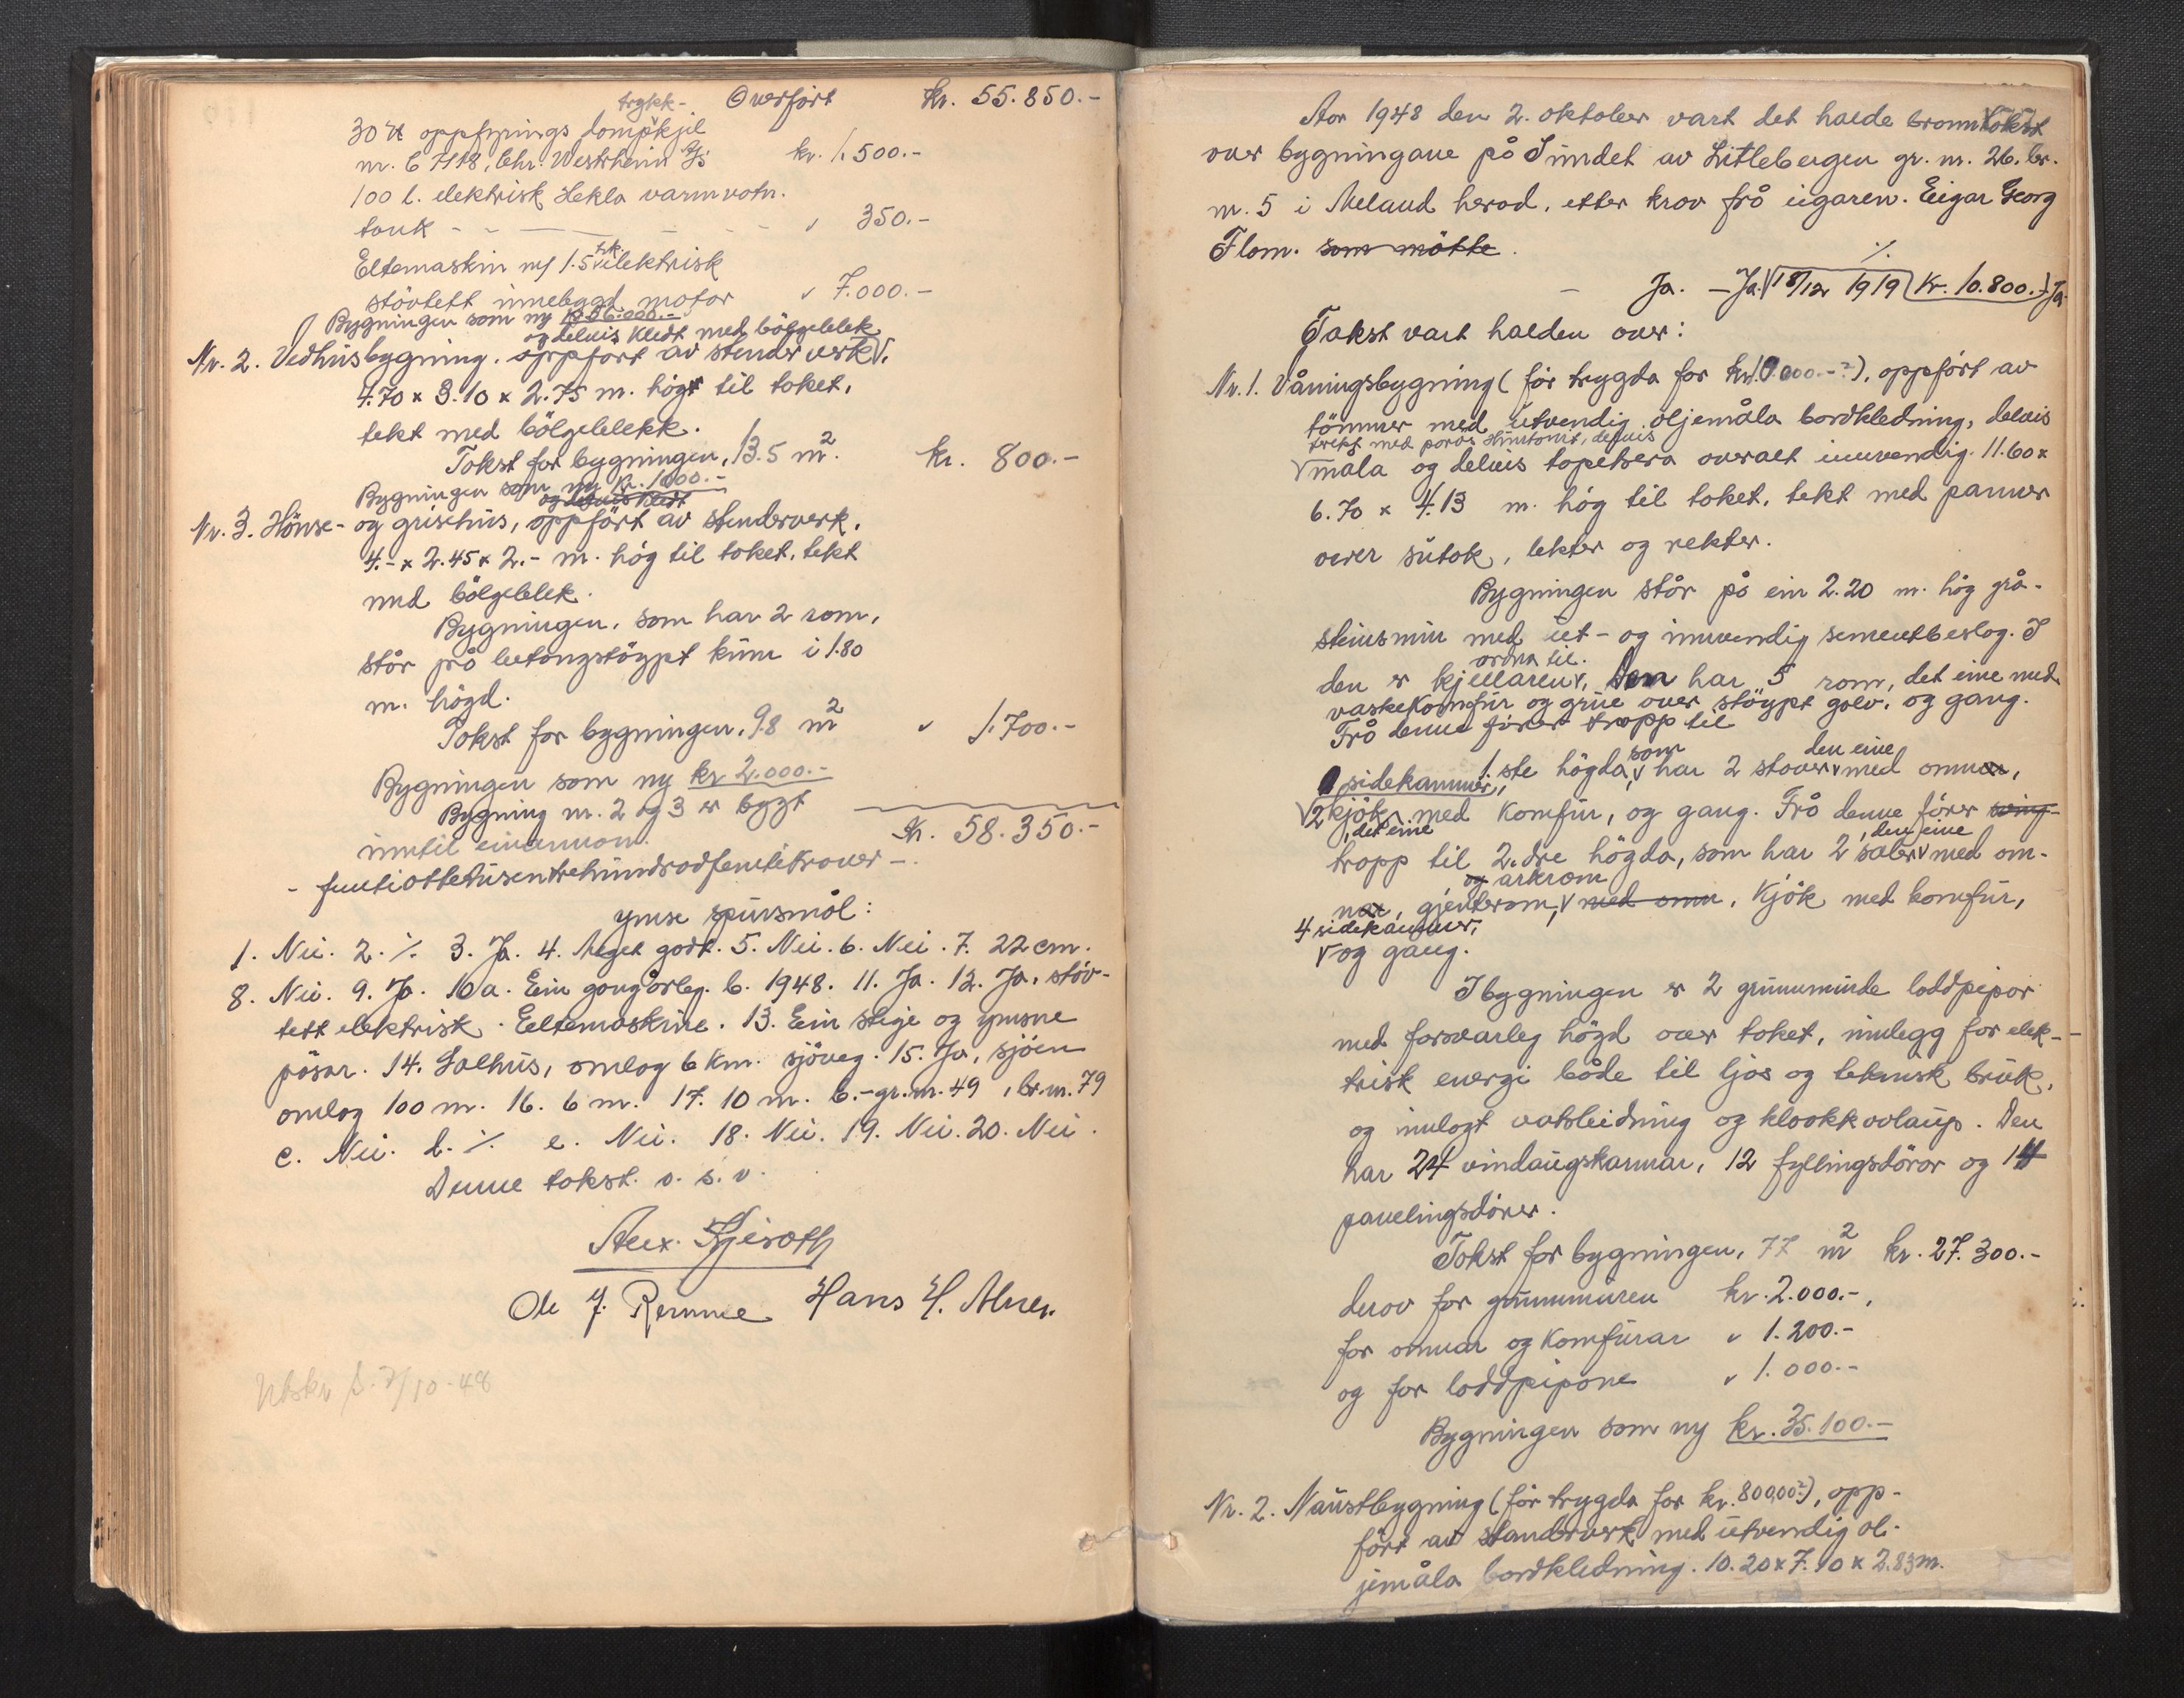 Overført kr. 55.850.-
trykk-
30 oppfyrings dampkjel
nr. 6 7718, lchr. Westrheim A/s kr. 1.500.-
100 l. elektrisk Hekla varmvatn.
tank - - - - " 350.-
Eltemaskin m/ 1.5 hk. elektrisk
støvtett innebygd motor " 7.000.-
Bygningen som ny kr. 86.000.-
og delvis kledt med bölgeblek
Nr. 2. Vedhusbygning. oppført av stenderverk √.
4.70 x 3.10 x 2.75 m. høg til taket,
tekt med bölgeblekk.
Takst for bygningen, 13.5 m². kr. 800.-
Bygningen som ny kr. 1000.-
og delvis kledt
Nr. 3. Hönse- og grisehus, oppført av stenderverk.
4.- x 2.45 x 2.- m. høg til taket, tekt
med bölgeblek.
Bygningen, som har 2 rom,
står på betongstøypt kum i 1.80
m. høgd.
Takst for bygningen, 9.8 m² " 1.700.-
Bygningen som ny kr 2.000.-
Bygning nr. 2 og 3 er bygt
inntil einannan. Kr. 58.350.-
- femtiåttetusentrehundreogfemtikroner -.
ymse spursmål:
1. Nei. 2. ⁒ 3. Ja. 4. Meget godt. 5. Nei. 6. Nei. 7. 22 cm.
8. Nei. 9. Ja. 10 a. Ein gong årleg. b. 1948. 11. Ja. 12. Ja, støv-
tett elektrisk. Eltemaskine. 13. Ein stige og ymsne
pøsar. 14. Salhus, omlag 6 km. sjøveg. 15. Ja, sjøen
omlag 100 m. 16. 6 m. 17. 10 m. b.- gr. nr. 49, br. nr. 79
c. Nei. d. ⁒ e. Nei. 18. Nei. 19. Nei. 20. Nei.
Denne takst. o. s. v.
Alex. Kjeroth
Ole J. Remme Hans H. Alver.
Utskr d. 7/10-48
Aar 1948 den 2. oktober vart det halde branntakst
over bygningane på Sundet av Litlebergen gr. nr. 26, br.
nr. 5 i Meland herad, etter krav frå eigaren. Eigar Georg
Flom. som møtte.
⁒
Ja. - Ja. √ 18/12 1919 (Kr. 10.800.-) Ja
Takst vart halden over:
Nr. 1. Våningsbygning (før trygda for kr. 10.000.-?), oppført av
tömmer med utvendig oljemåla bordkledning, delvis
trekt med porøs Huntonit, delvis
√ måla og delvis tapetsera overalt innvendig. 11.60 x
6.70 x 4.13 m. høg til taket, tekt med panner
over sutak, lekter og rekter.
Bygningen står på ein 2.20 m. høg grå-
steinsmur med ut- og innvendig sementbeslag. I
ordna til.
den er kjellaren √, Den har 5 rom, det eine med
vaskekomfur og grue over støypt golv, og gang.
Frå denne fører trapp til
som den eine
1.ste høgda, √ har 2 stover √ med omnar,
1 sidekammer,
√ 2 kjøk, med komfur, og gang. Frå denne fører sving-
, det eine , den eine
trapp til 2.dre høgda, som har 2 saler √ med om-
og arkrom
nar, gjenterom, √ med omn, Kjøk med komfur,
4 sidekammer,
√ og gang.
I bygningen er 2 grunnmurde loddpipor
med forsvarleg høgd over taket, innlegg for elek-
trisk energi både til ljos og teknisk bruk,
og innlagt vatsleidning og kloakkavlaup. Den
har 24 vindaugskarmar, 12 fyllingsdörar og 14
panelingsdörer.
Takst for bygningen, 77 m² kr. 27.300.-
derav for grunnmuren kr. 2.000.-,
for omnar og Komfurar " 1.200.-
og for loddpipone " 1.000.-
Bygningen som ny kr. 35.100.-
Nr. 2. Naustbygning (før trygda for kr. 800,00?), opp-
ført av standerverk med utvendig ol-
jemåla bordkledning. 10.20 x 7.10 x 2.83 m.